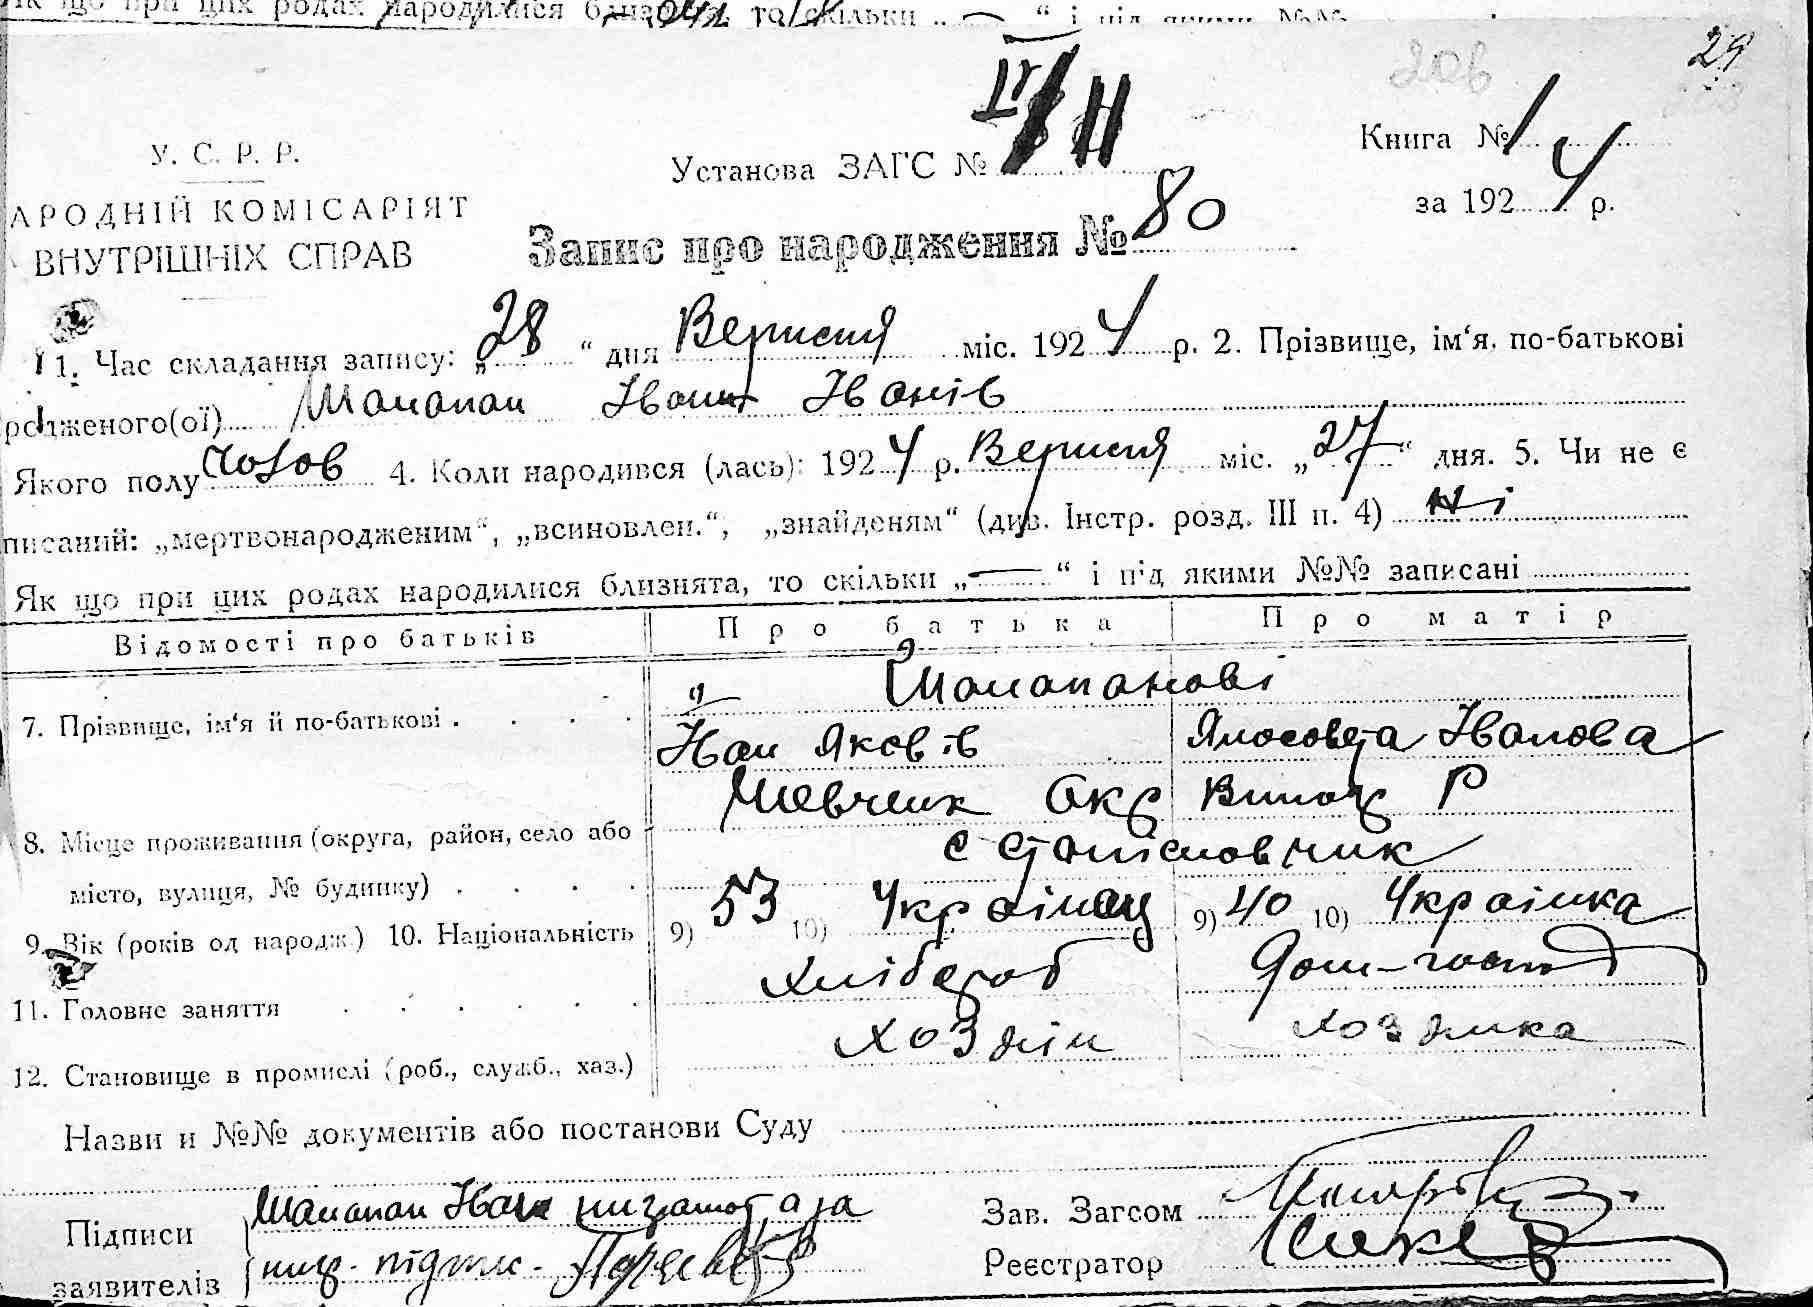 Як що при цих родах народилися близнята, то скільки „ — “ і під якими №№
29
У. С. Р. Р.
АРОДНІЙ КОМІСАРІЯТ
ВНУТРІШНІХ СПРАВ
Установа ЗАГС №
Книга № 1
за 1924 р.
Запис про народження № 80
1. Час складання запису: „28“ дня Вересня міс. 1924 р. 2. Прізвище, ім‘я, по-батькові
родженого(ої) Шалапан Іван Іванів
Якого полу Чолов 4. Коли народився (лась): 1924 р. Вересня міс. „27“ дня. 5. Чи не є
писаний: „мертвонародженим“, „всиновлен.“, „знайденям“ (див. Інстр. розд. III п. 4) Ні
Як що при цих родах народилися близнята, то скільки „ — “ і під якими №№ записані
Відомості про батьків Про батька Про матір
7. Прізвище, ім‘я й по-батькові . . . . Шалапанові
Іван Яковів Ялосовета Іванова
8. Місце проживання (округа, район, село або Шевченк Окр Вільш Р
місто, вулиця, № будинку) . . . . с Станіславчик
9. Вік (років од народж.) 10. Національність 9) 53 10) Українец 9) 40 10) Українка
11. Головне заняття . . . . . Хлібороб Дом-господ
12. Становище в промислі (роб., служб., хаз.) хозяін хозяика
Назви и №№ документів або постанови Суду
Підписи
заявителів
Шалапан Іван
Зав. Загсом
Реєстратор